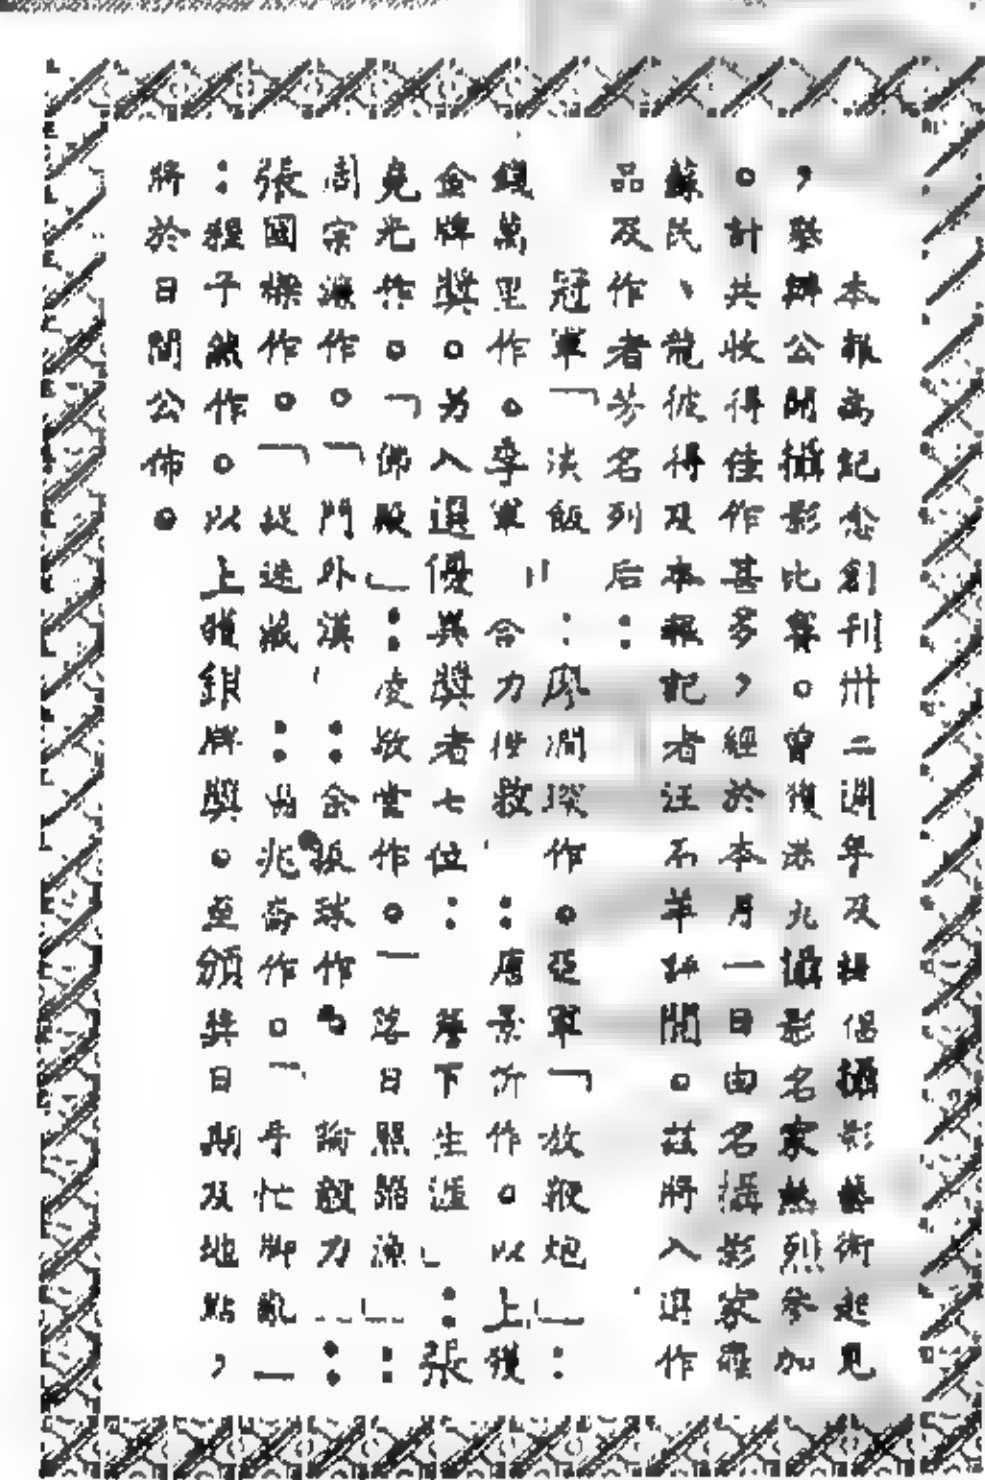 本報為紀念創刊卅二週年及提倡攝影藝術起見
，舉辦公開攝影比賽。曾獲港九攝影名家熱烈參加
。計共收得佳作甚多，經於本月一日由名攝影家羅
蘇民、龍彼得及本報記者汪石羊評閱。茲將入選作
品及作者芳名列后：
冠軍「淡飯」：廖潤琛作。亞軍「放鞭炮」：
錢萬里作。季軍「合力拯救」：唐景沂作。以上獲
金牌獎。另入選優異獎者七位：「簷下生涯」：張
堯光作。「佛殿」：凌敬堂作。「落日照歸漁」：
周宗濂作。「門外漢」：余振球作。「論毅力」：
張國樑作。「捉迷藏」：冼兆嵜作。「手忙脚亂」
：程子然作。以上獲銀牌獎。至頒獎日期及地點，
將於日間公佈。